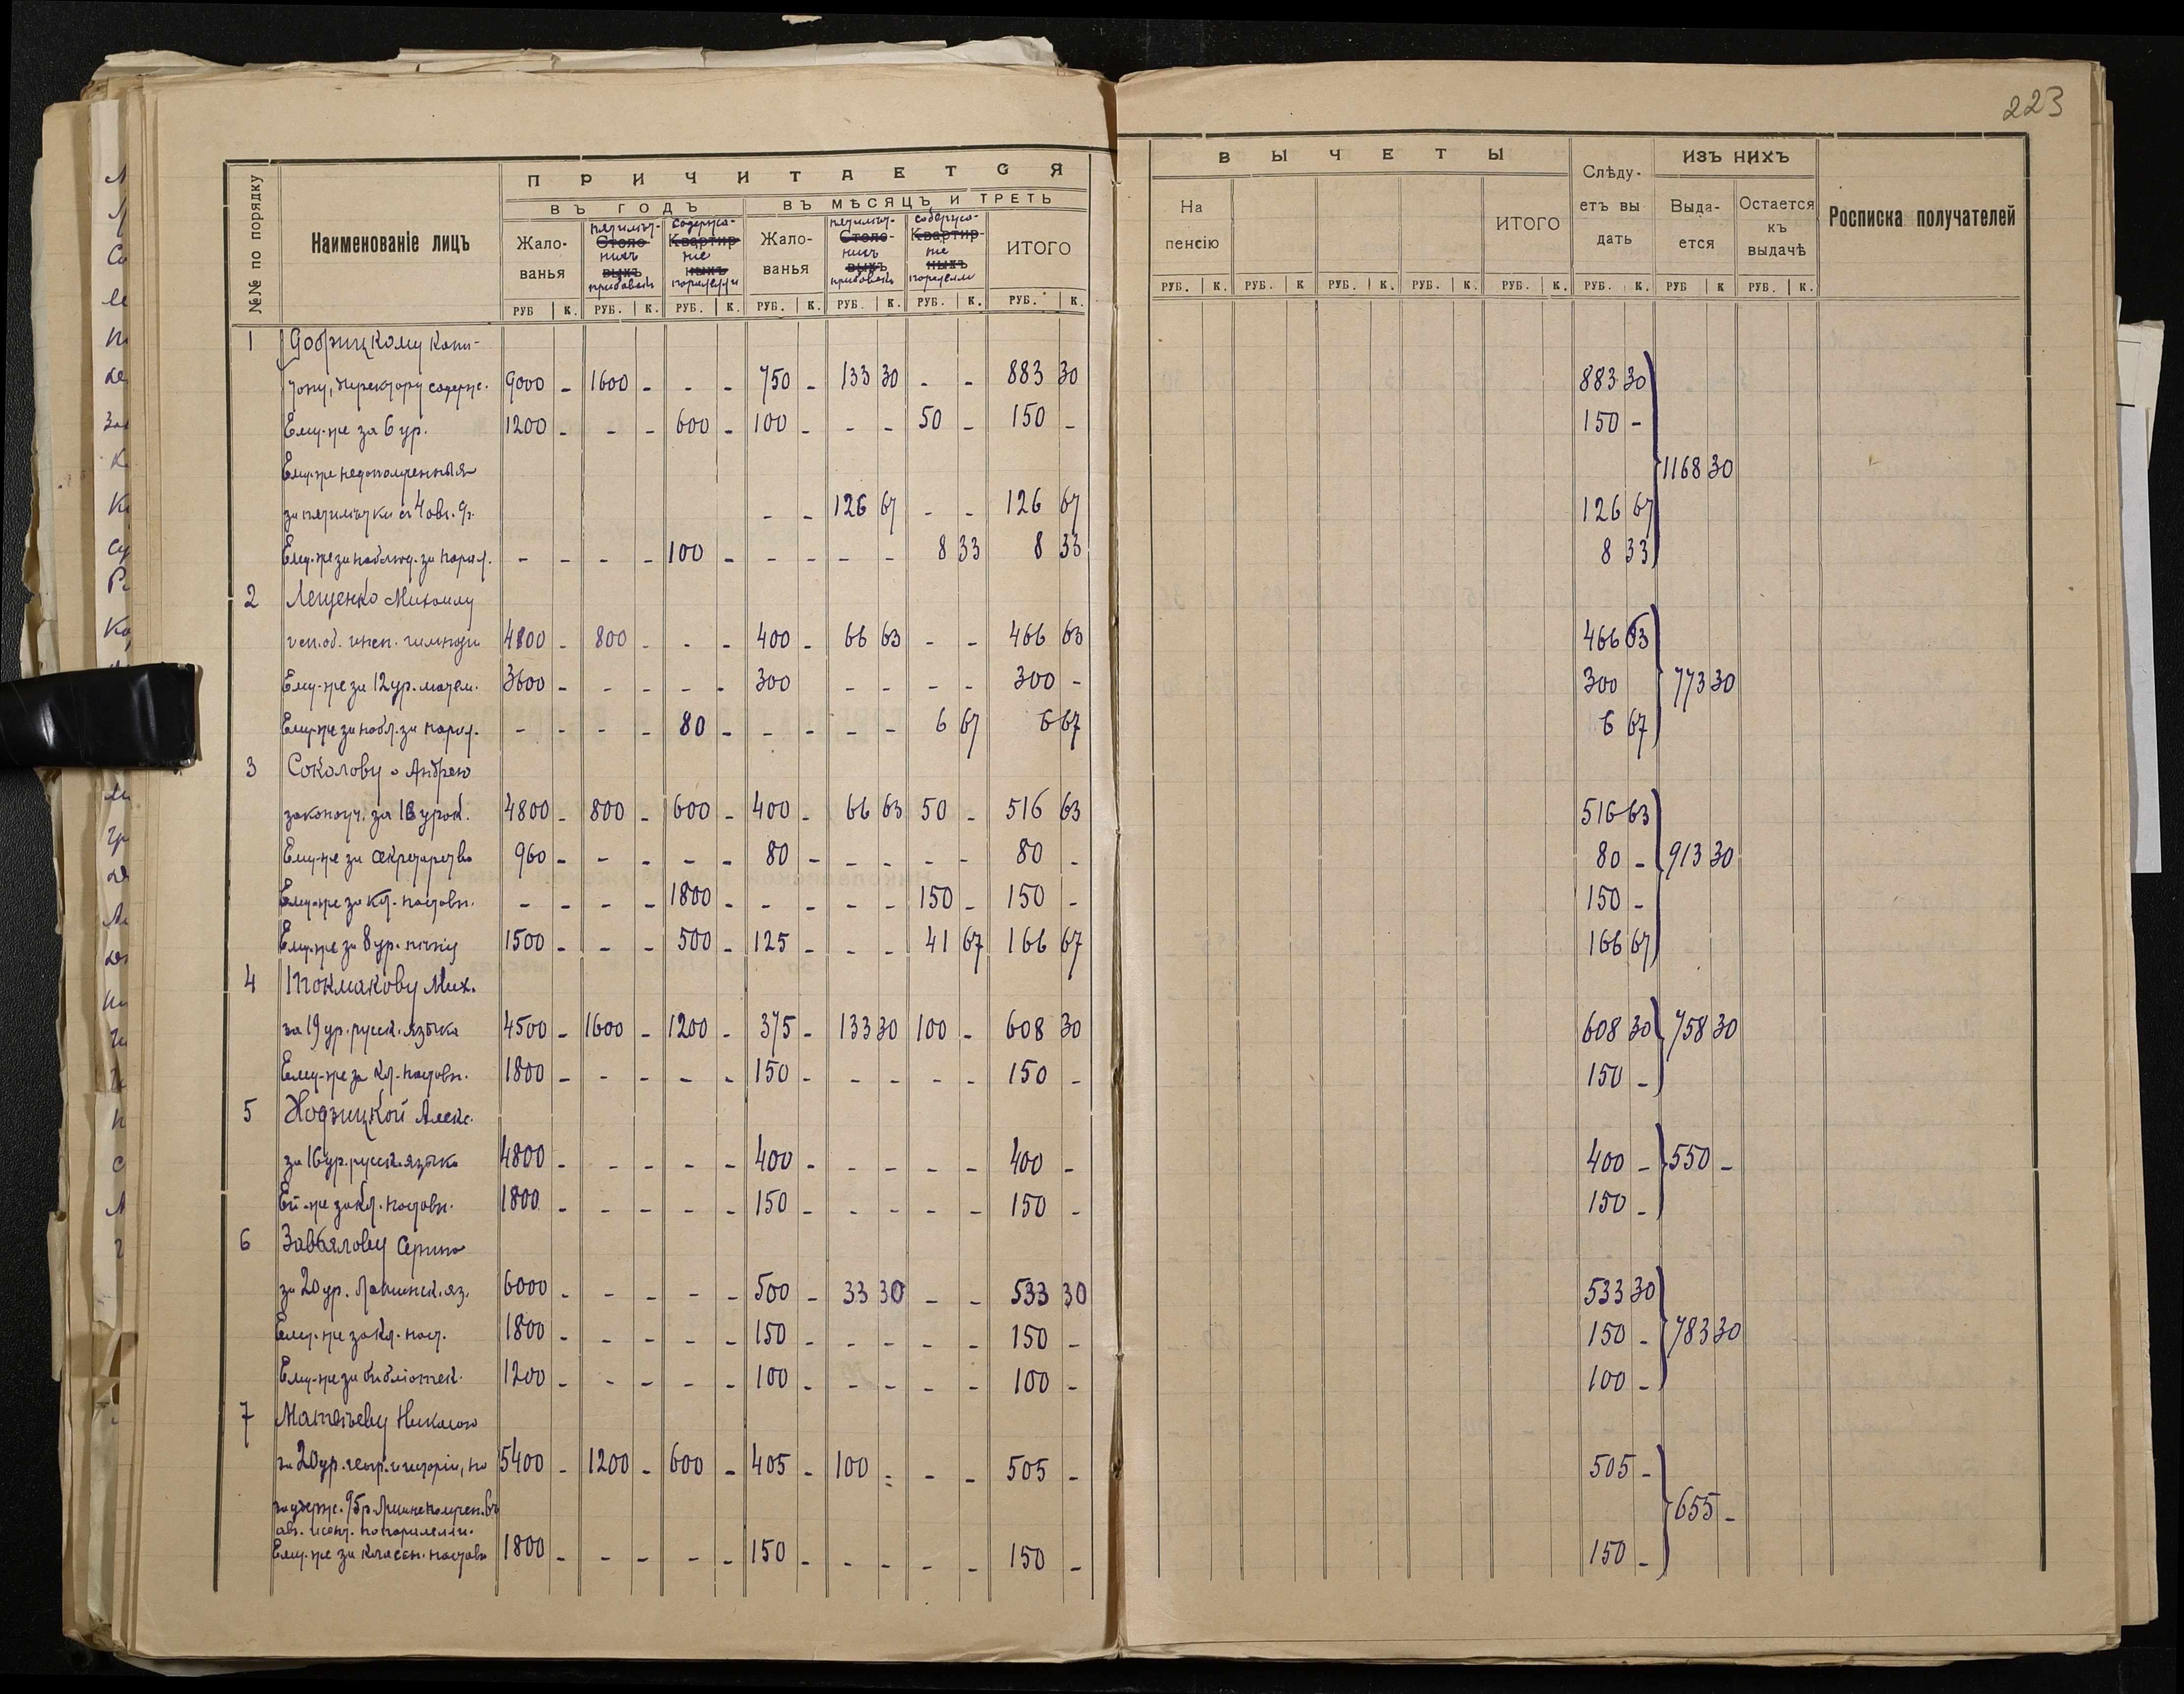 223
№№ по порядку
Наименованіе лицъ
ПРИЧИТАЕТСЯ
ВЪ ГОДЪ
ВЪ МѢСЯЦЪ И ТРЕТЬ
Жало-
ванья
Столо-
выхъ
прибавокъ
содержа-
Квартир-
ние
ныхъ
Жало-
ванья
Столо-
выхъ
прибавокъ
содержа-
Квартир-
ние
ныхъ
ИТОГО
РУБ К. РУБ. К. РУБ. К. РУБ. К. РУБ. К. РУБ. К. РУБ. К.
ВЫЧЕТЫ
На
пенсію
ИТОГО
Слѣду-
етъ вы
дать
ИЗЪ НИХЪ
Выда-
ется
Остается
къ
выдачѣ
Росписка получателей
РУБ. К. РУБ. К РУБ. К. РУБ. К. РУБ. К. РУБ. К. РУБ К РУБ. К.
1 Добрицкому Капи-
тону, директору содерж. 9000 - 1600 - - - 750 - 133 30 - - 883 30 883 30
Ему-же за 6 ур. 1200 - - - 600 - 100 - - - 50 - 150 - 150 -
Ему-же недополученныя 1168 30
за пятилѣтки съ 4 авг. - - 126 67 - - 126 67 126 67
Ему-же за наблюд. за парал. - - - - 100 - - - - - 8 33 8 33 8 33
2 Лещенко Михаилу
исп. об. инсп. гимнази 4800 - 800 - - - 400 - 66 63 - - 466 63 466 63
Ему-же за 12 ур. матем. 3600 - - - - - 300 - - - - 300 - 300 773 30
Ему-же за набл. за парал. - - - - 80 - - - - - 6 67 6 67 6 67
3 Соколову о Андрею
законоуч. за 16 урок. 4800 - 800 - 600 - 400 - 66 63 50 - 516 63 516 63
Ему-же за секретарство 960 - - - - - 80 - - - - - 80 - 80 - 913 30
Ему-же за кл. наставн. - - - - 1800 - - - - - 150 - 150 - 150 -
Ему-же за 8 ур. пѣнія 1500 - - - 500 - 125 - - - 41 67 166 67 166 67
4 Токмакову Мих.
за 19 ур. русск. языка 4500 - 1600 - 1200 - 375 - 133 30 100 - 608 30 608 30 758 30
Ему-же за кл. наставн. 1800 - - - - - 150 - - - - - 150 - 150 -
5 Ходзицкой Алекс.
за 16 ур. русск. языка 4800 - - - - - 400 - - - - - 400 - 400 - 550 -
Ей-же за кл. наставн. 1800 - - - - - 150 - - - - - 150 - 150 -
6 Завьялову
за 20 ур. Латинск. яз. 6000 - - - - - 500 - 33 30 - - 533 30 533 30
Ему-же за кл. наст. 1800 - - - - - 150 - - - - - 150 - 150 - 783 30
Ему-же за библіотек. 1200 - - - - - 100 - - - - - 100 - 100 -
7 Матвѣеву Николаю
за 20 ур. геогр. и исторіи, но 5400 - 1200 - 600 - 405 - 100 - - - 505 - 505 -
задерж. 95р. 655 -
авг. и сент. по параллели.
Ему-же за классн. настав 1800 - - - - - 150 - - - - - 150 - 150 -